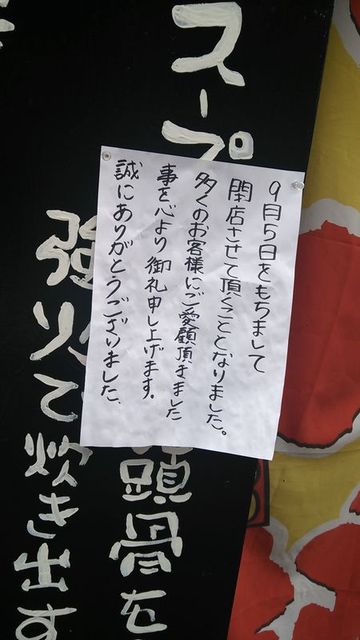 スープ
頭骨を
強火で炊き出す
9月5日をもちまして
閉店させて頂くこととなりました。
多くのお客様にご愛顧頂きました
事を心より御礼申し上げます。
誠にありがとうございました。